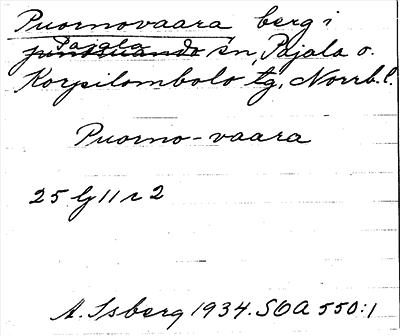 Puornovaara berg i
Pajala
Junosuando sn, Pajala o.
Korpilombolo tg, Norrb. l.
Puorno-vaara
25 lj 11 r 2
A. Isberg 1934. SOA 550:1